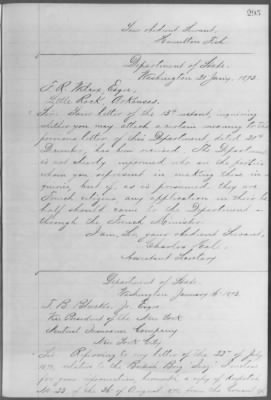 295
Your obedient Servant,
Hamilton Fish
Department of State,
Washington 21 Jany. 1873.
T. R. Esqre,
Little Rock, Arkansas.
Sir: Your letter of the 15th instant, inquiring
whether you may attach a certain meaning to the
previous letter of this Department dated 20th
December, has been received. The Department
is not clearly informed who are the parties
whom you represent in making these in-
quiries, but if, as is presumed, they are
French citizens, any application in their be-
half should come to the Department
through the French Minister.
I am, Sir, your obedient Servant,
Charles Hale,
Assistant Secretary
Department of State,
Washington January 1873.
T. B. Jr. Esqre
Vice President of the New York
Mutual Insurance Company
New York City
Sir: Referring to my letter of the 22d of July
1872, relative to the British Brig I enclose
for your information, herewith a copy of despatch
No. 22 of the of August 1872, from the Consul of